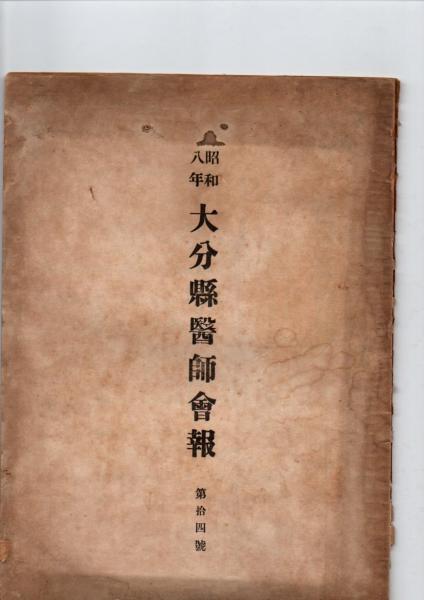 昭和
八年
大分縣醫師會報
第拾四號